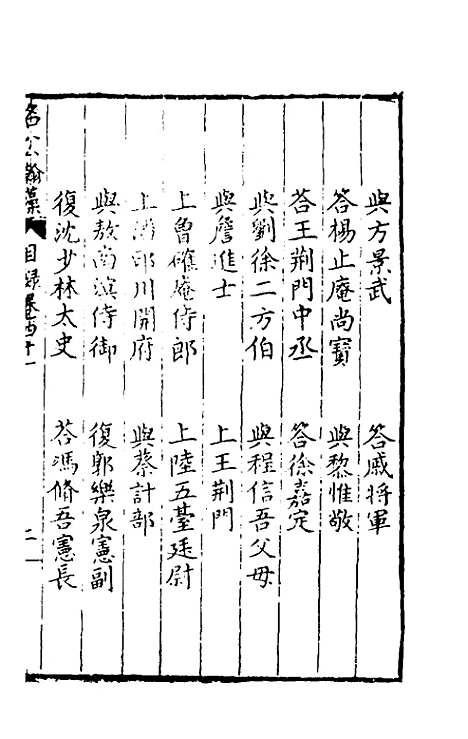 與方景武 答戚將軍
答楊止庵尚寶 與黎惟敬
荅王荆門中丞 答徐嘉定
與劉徐二方伯 與程信吾父母
與詹進士 上王荆門
上魯確庵侍郎 上陸五臺廷尉
上潘印川開府 與蔡計部
與敖尚濱侍御 復郭樂泉憲副
復沈少林太史 荅馮脩吾憲長
名公翰藻 目録卷四十一 二